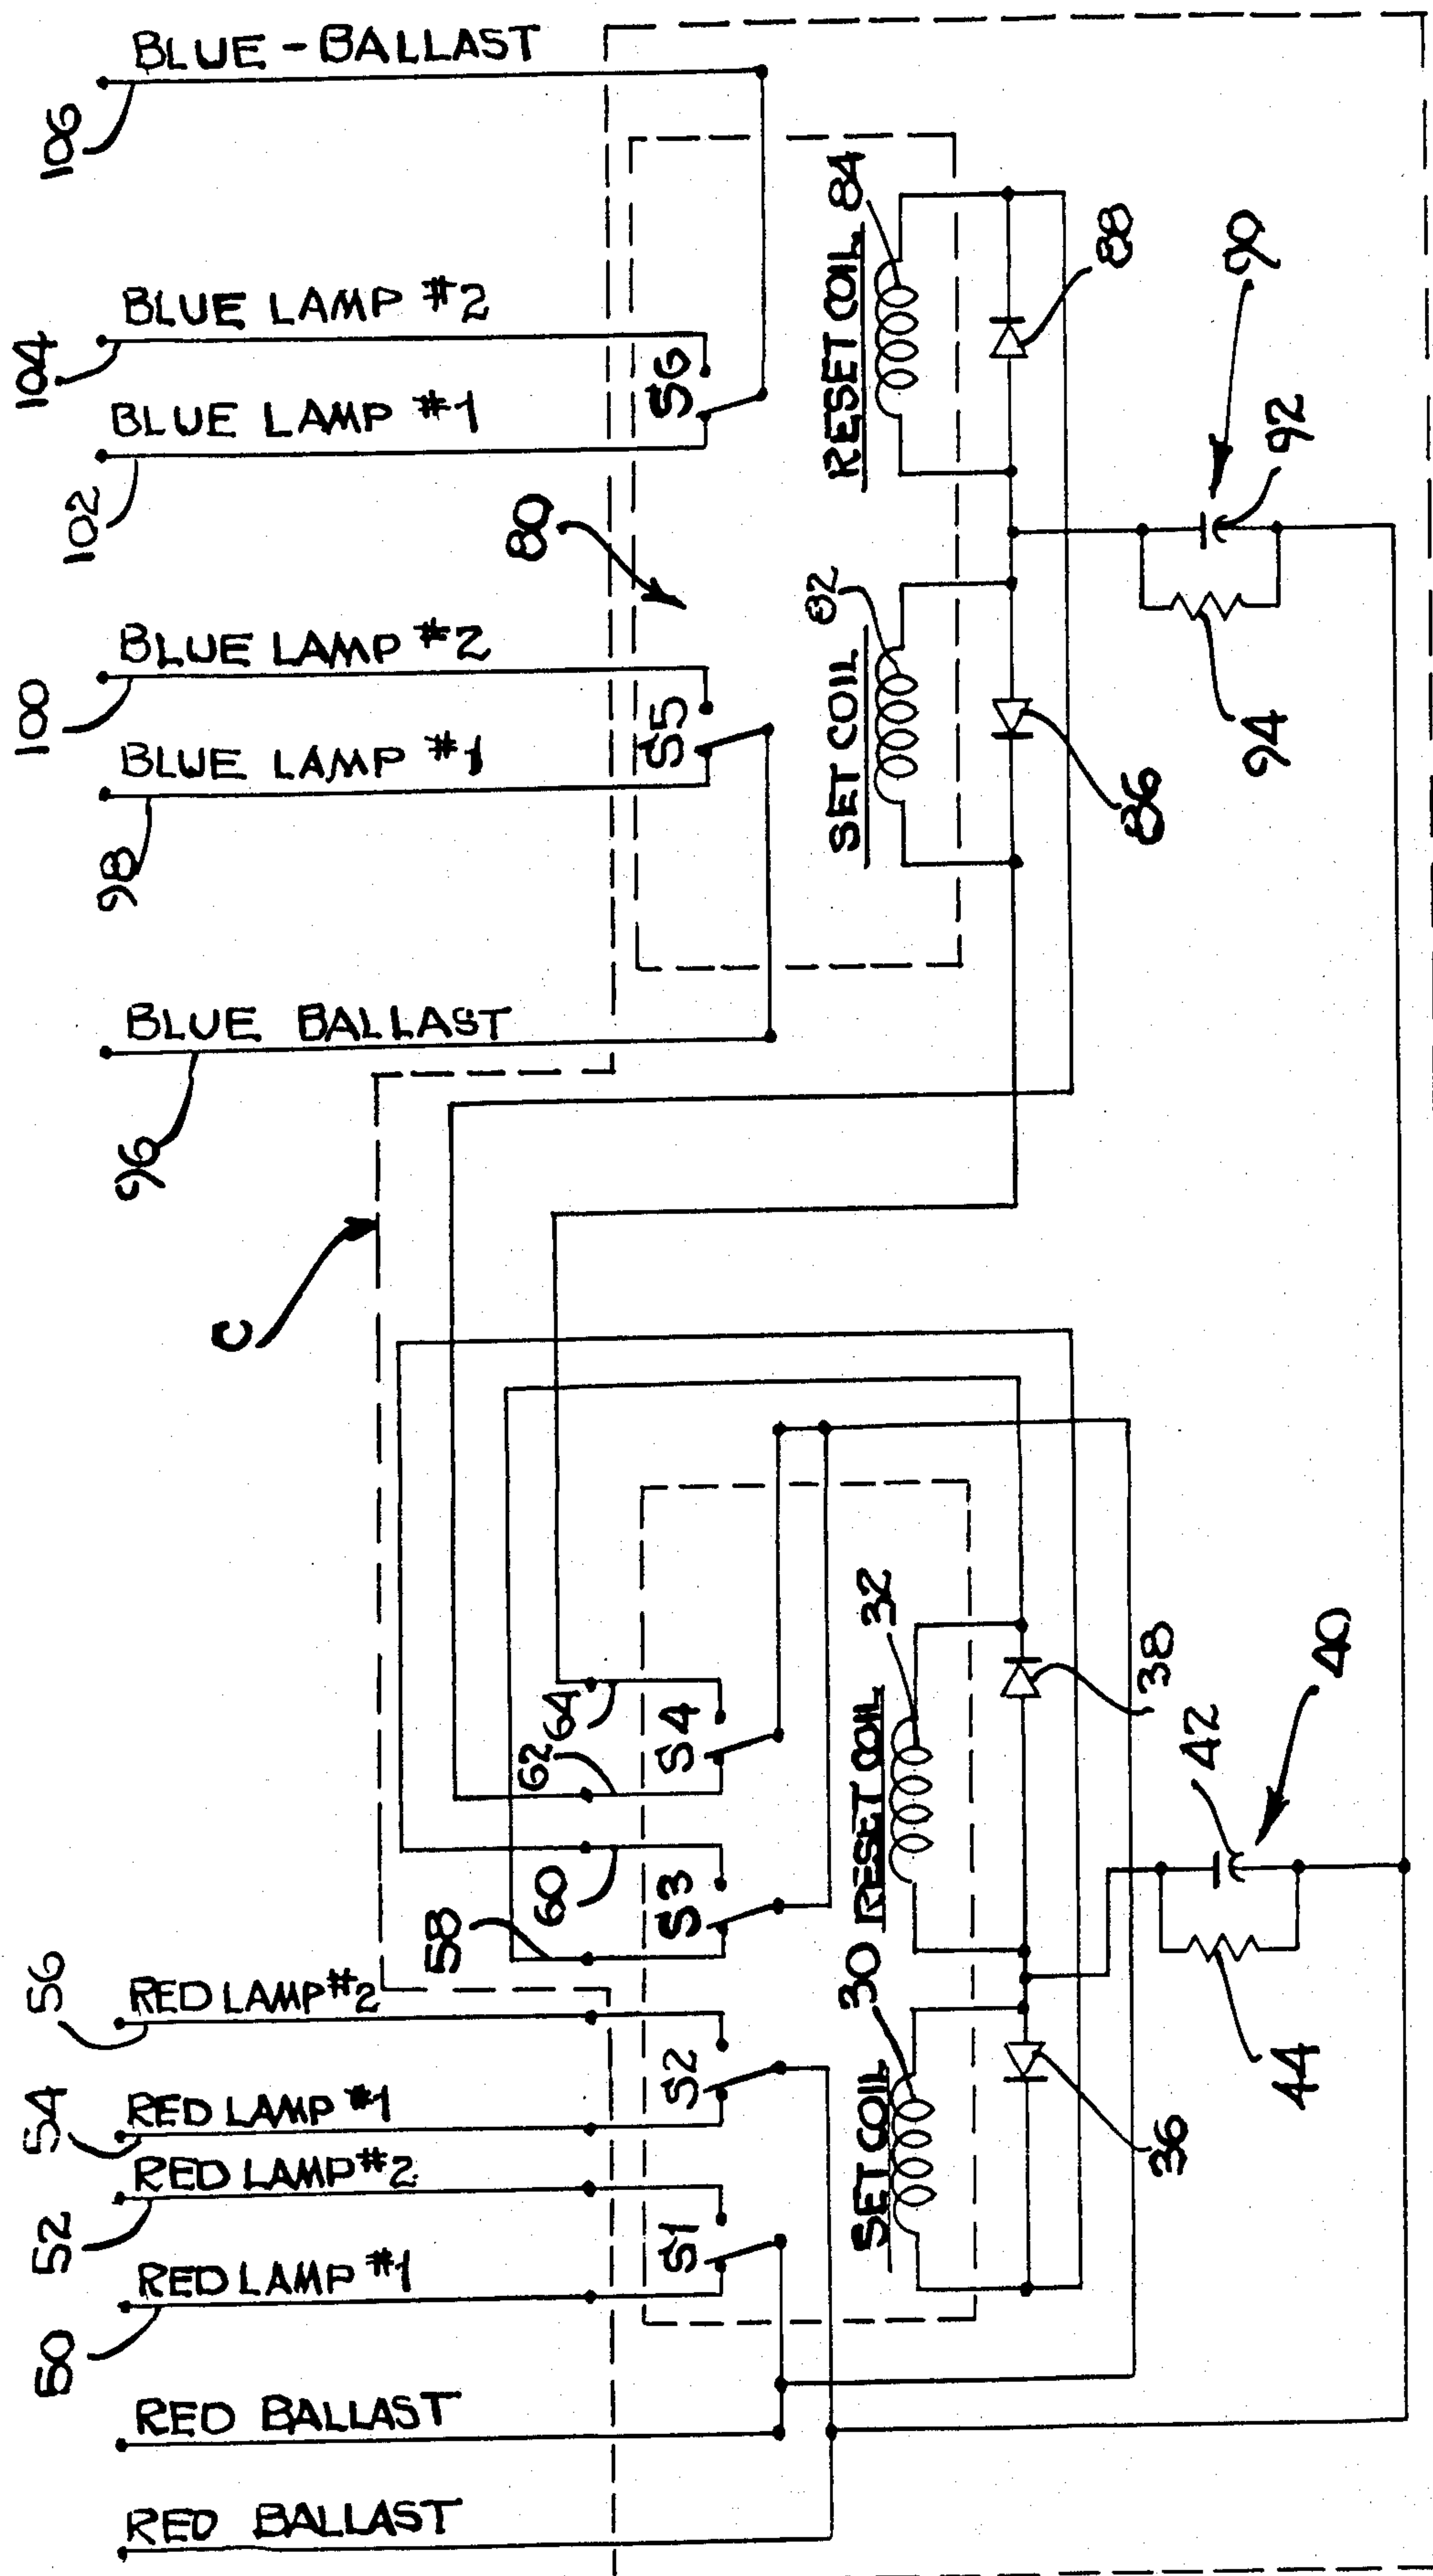 106
BLUE - BALLAST
104
BLUE LAMP #2
BLUE LAMP #1
102
S6
RESET COIL
84
88
90
92
80
100
BLUE LAMP #2
BLUE LAMP #1
98
S5
SET COIL
82
86
94
BLUE BALLAST
96
C
64
62
S4
60
S3
58
RESET COIL
32
38
40
42
44
56
RED LAMP #2
54
RED LAMP #1
S2
52
RED LAMP #2
50
RED LAMP #1
S1
SET COIL
30
36
RED BALLAST
RED BALLAST